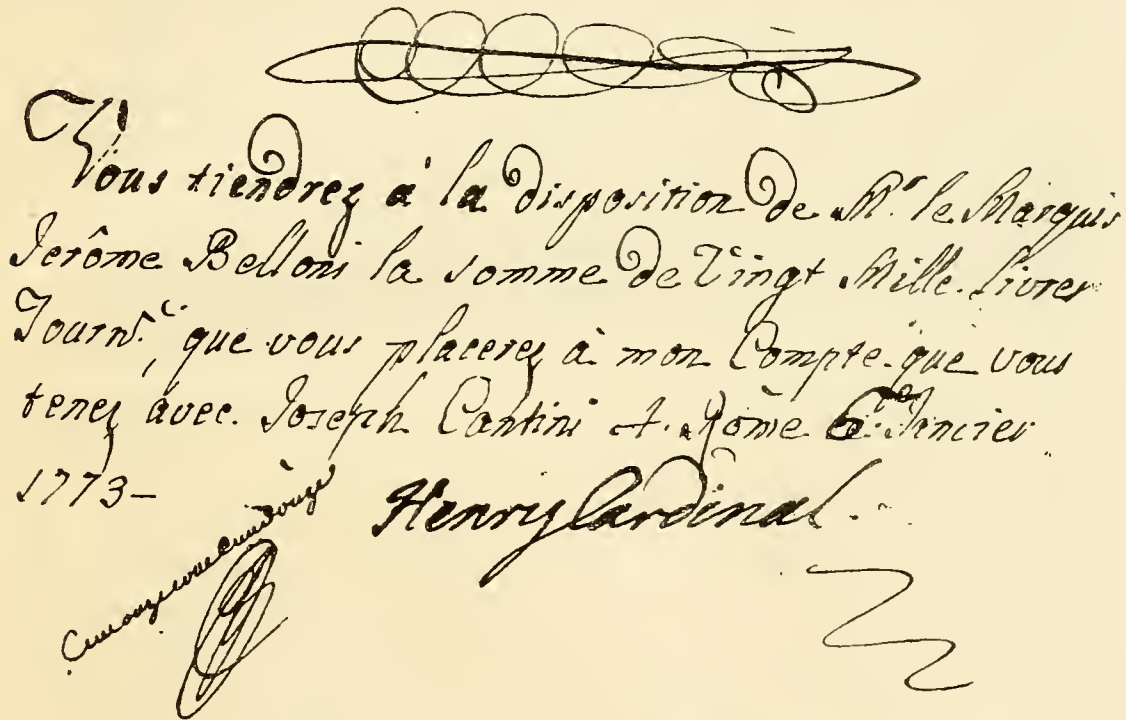 Vous tiendrez à la disposition de M.r le Marquis
Jerôme Belloni la somme de Vingt Mille Livres
Tourn.s, que vous placerez à mon Compte que vous
tenez avec Joseph Cantini A. Rome 6
1773-
Henry Cardinal.